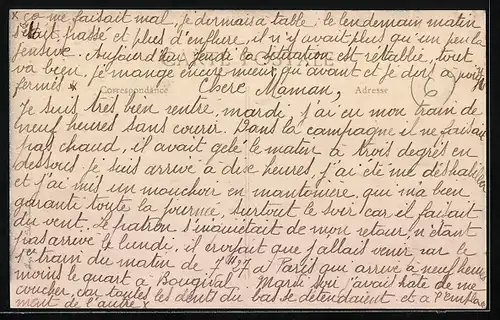 x ça me faisait mal, je dormais à table ; le lendemain matin
c'était passé et plus d'enflure, il n'y avait plus qu'un peu la
gencive. Aujourd'hui jeudi la situation est rétablie, tout
va bien, je mange encore mieux qu'avant et je dors à poings
fermés x
Chère Maman,
6
CARTE POSTALE
Correspondance
Adresse
Je suis très bien rentré, mardi, j'ai eu mon train de
neuf heures sans courir. Dans la campagne il ne faisait
pas chaud, il avait gelé le matin à trois degrés en
dessous je suis arrivé à dix heures, j'ai été me déshabiller
et j'ai mis un mouchoir en mentonnière, qui m'a bien
garanti toute la journée, surtout le soir car il faisait
du vent. Le patron s'inquiétait de mon retour, n'étant
pas arrivé le lundi, il croyait que j'allais venir par le
1er train du matin de 7H37 à Paris qui arrive à neuf heures
moins le quart à Bougival. Mardi soir j'avais hâte de me
coucher, car toutes les dents du bas se détendaient et à l'empla-
ment de l'autre x